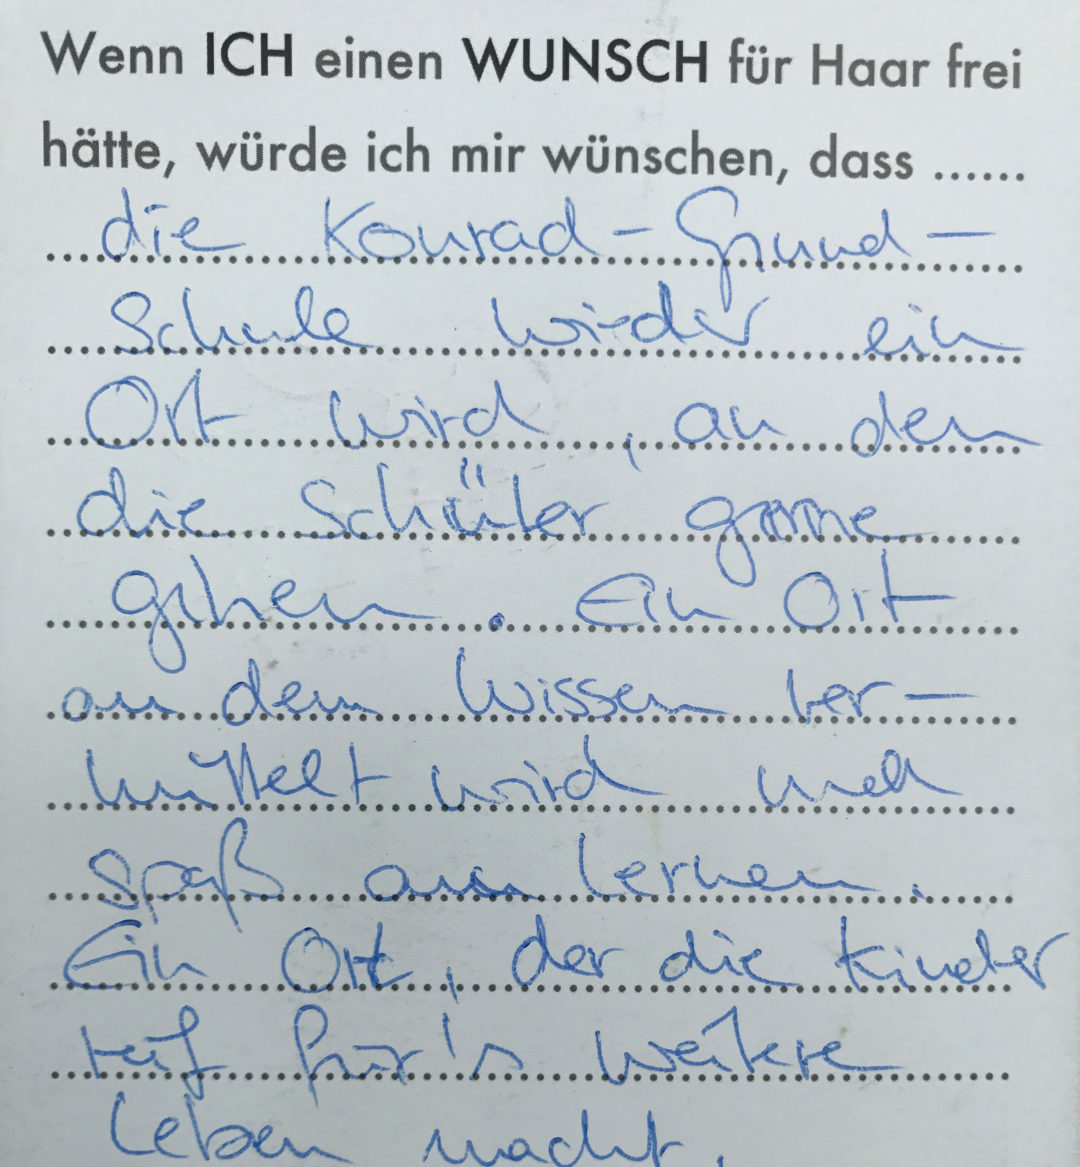 Wenn ICH einen WUNSCH für Haar frei
hätte, würde ich mir wünschen, dass ......
die Konrad-Grund-
Schule wieder ein
Ort wird, an dem
die Schüler gerne
gehen. Ein Ort
an dem Wissen ver-
mittelt wird und
spaß am Lernen.
Ein Ort, der die Kinder
reif für's weitere
Leben macht.